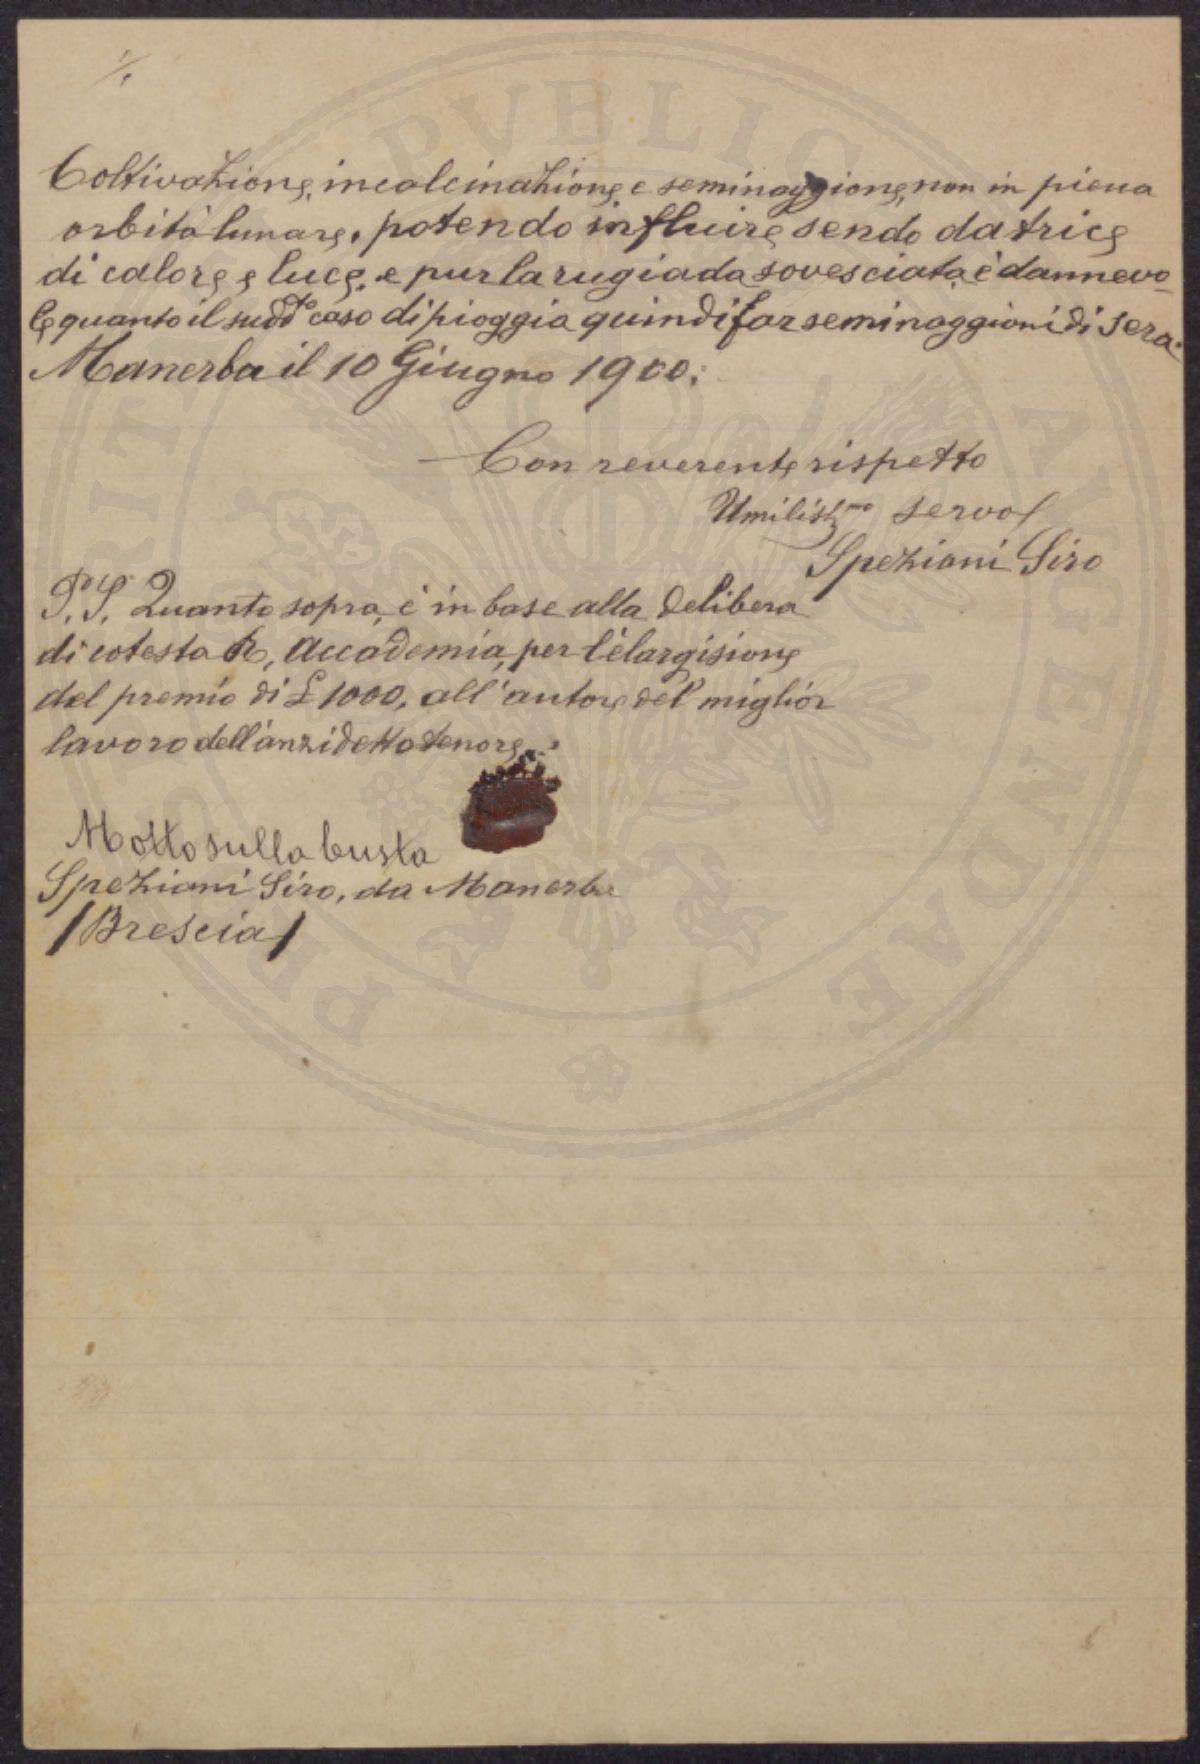 Coltivazione, incalcinazione e seminaggione, non in piena
orbità lunare, potendo influire sendo datrice
di calore e luce, e pur la rugiada sovesciata, è dannevo-
le quanto il sudd.to caso di pioggia quindi far seminaggioni di sera.
Manerba il 10 Giugno 1900.
Con reverente rispetto
Umiliss.mo servo
Speziani Siro
P.S. Quanto sopra, è in base alla delibera
di cotesta R. Accademia, per l'elargisione
del premio di £ 1000. all'autore del miglior
lavoro dell'anzidetto tenore.
Motto sulla busta
Speziani Siro, da Manerba
(Brescia)
PVBLICAE